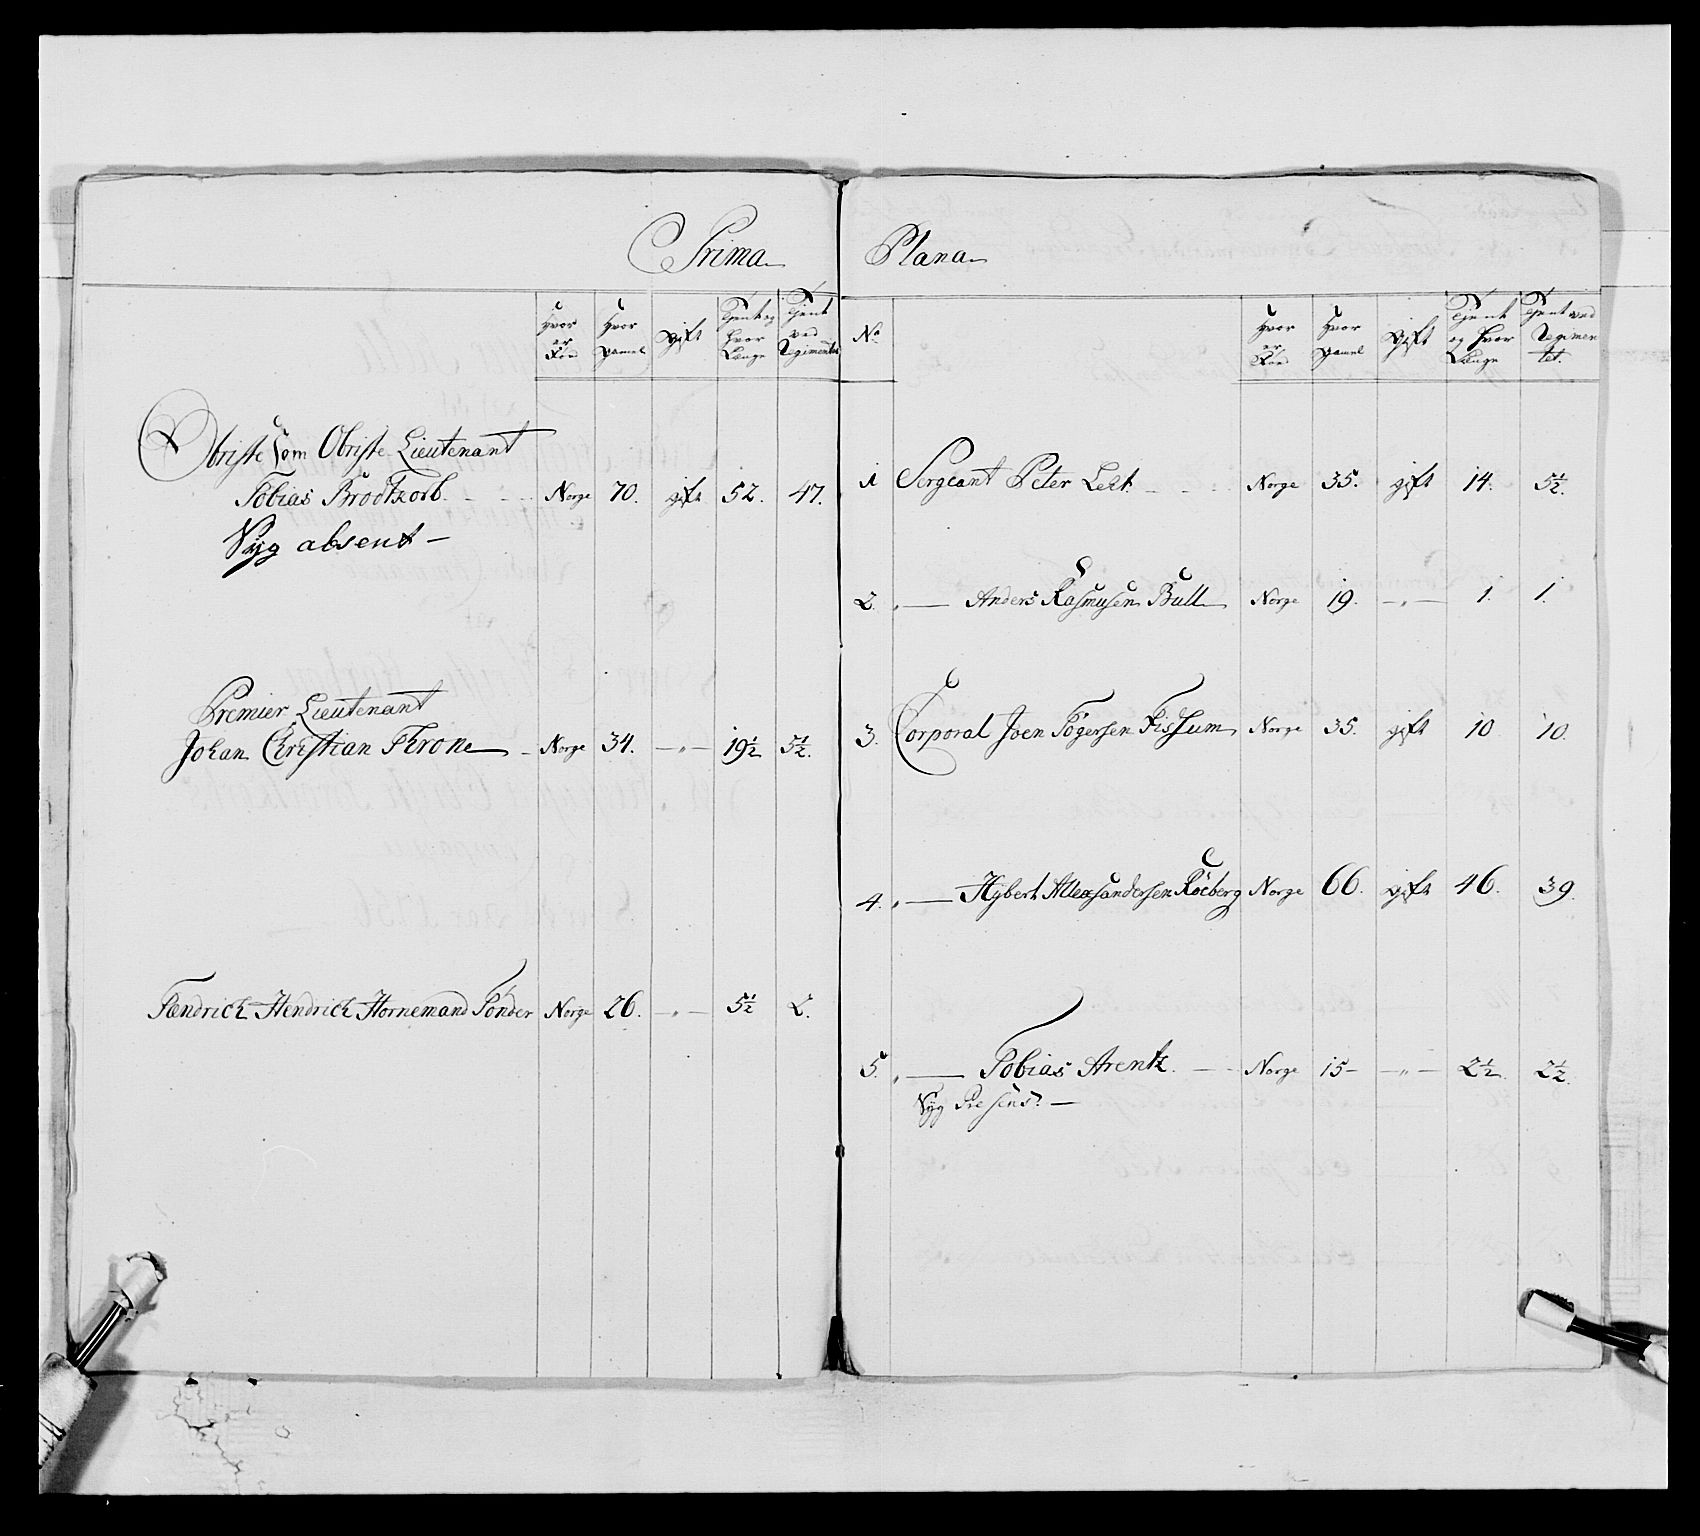 Prima
Hvor er Fød	Hvor gamel	gift	Tjent og hvor Længe	Tjent ved Regimentet
Obriste som Obriste Lieutenant
Tobias Brodtkorb.	Norge	70.	gift	52.	47.
Syg absent —
Premier Lieutenant
Johan Christian Throne	Norge	34.	—„—	19½	5½.
Fændrich Hendrich Hornemand Tønder	Norge	26.	—„—	5½	2.
Plana
No	Hvor er Fød	Hvor gamel	gift	Tjent og hvor Længe	Tjent ved Regimentet.
1	Sergeant Peter	Norge	35.	gift	14.	5½.
2.	„ — Anders Rasmusen Bull	Norge	19.	—„—	1.	1.
3.	Corporal Joen Tøgersen Fissum	Norge	35.	gift	10	10.
4.	„ — Hybert Allexsandersen Røeberg	Norge	66.	gift	46.	39.
5.	„ — Tobias Arentz.	Norge	15—	—„—	2½.	2½.
Syg Presens. —